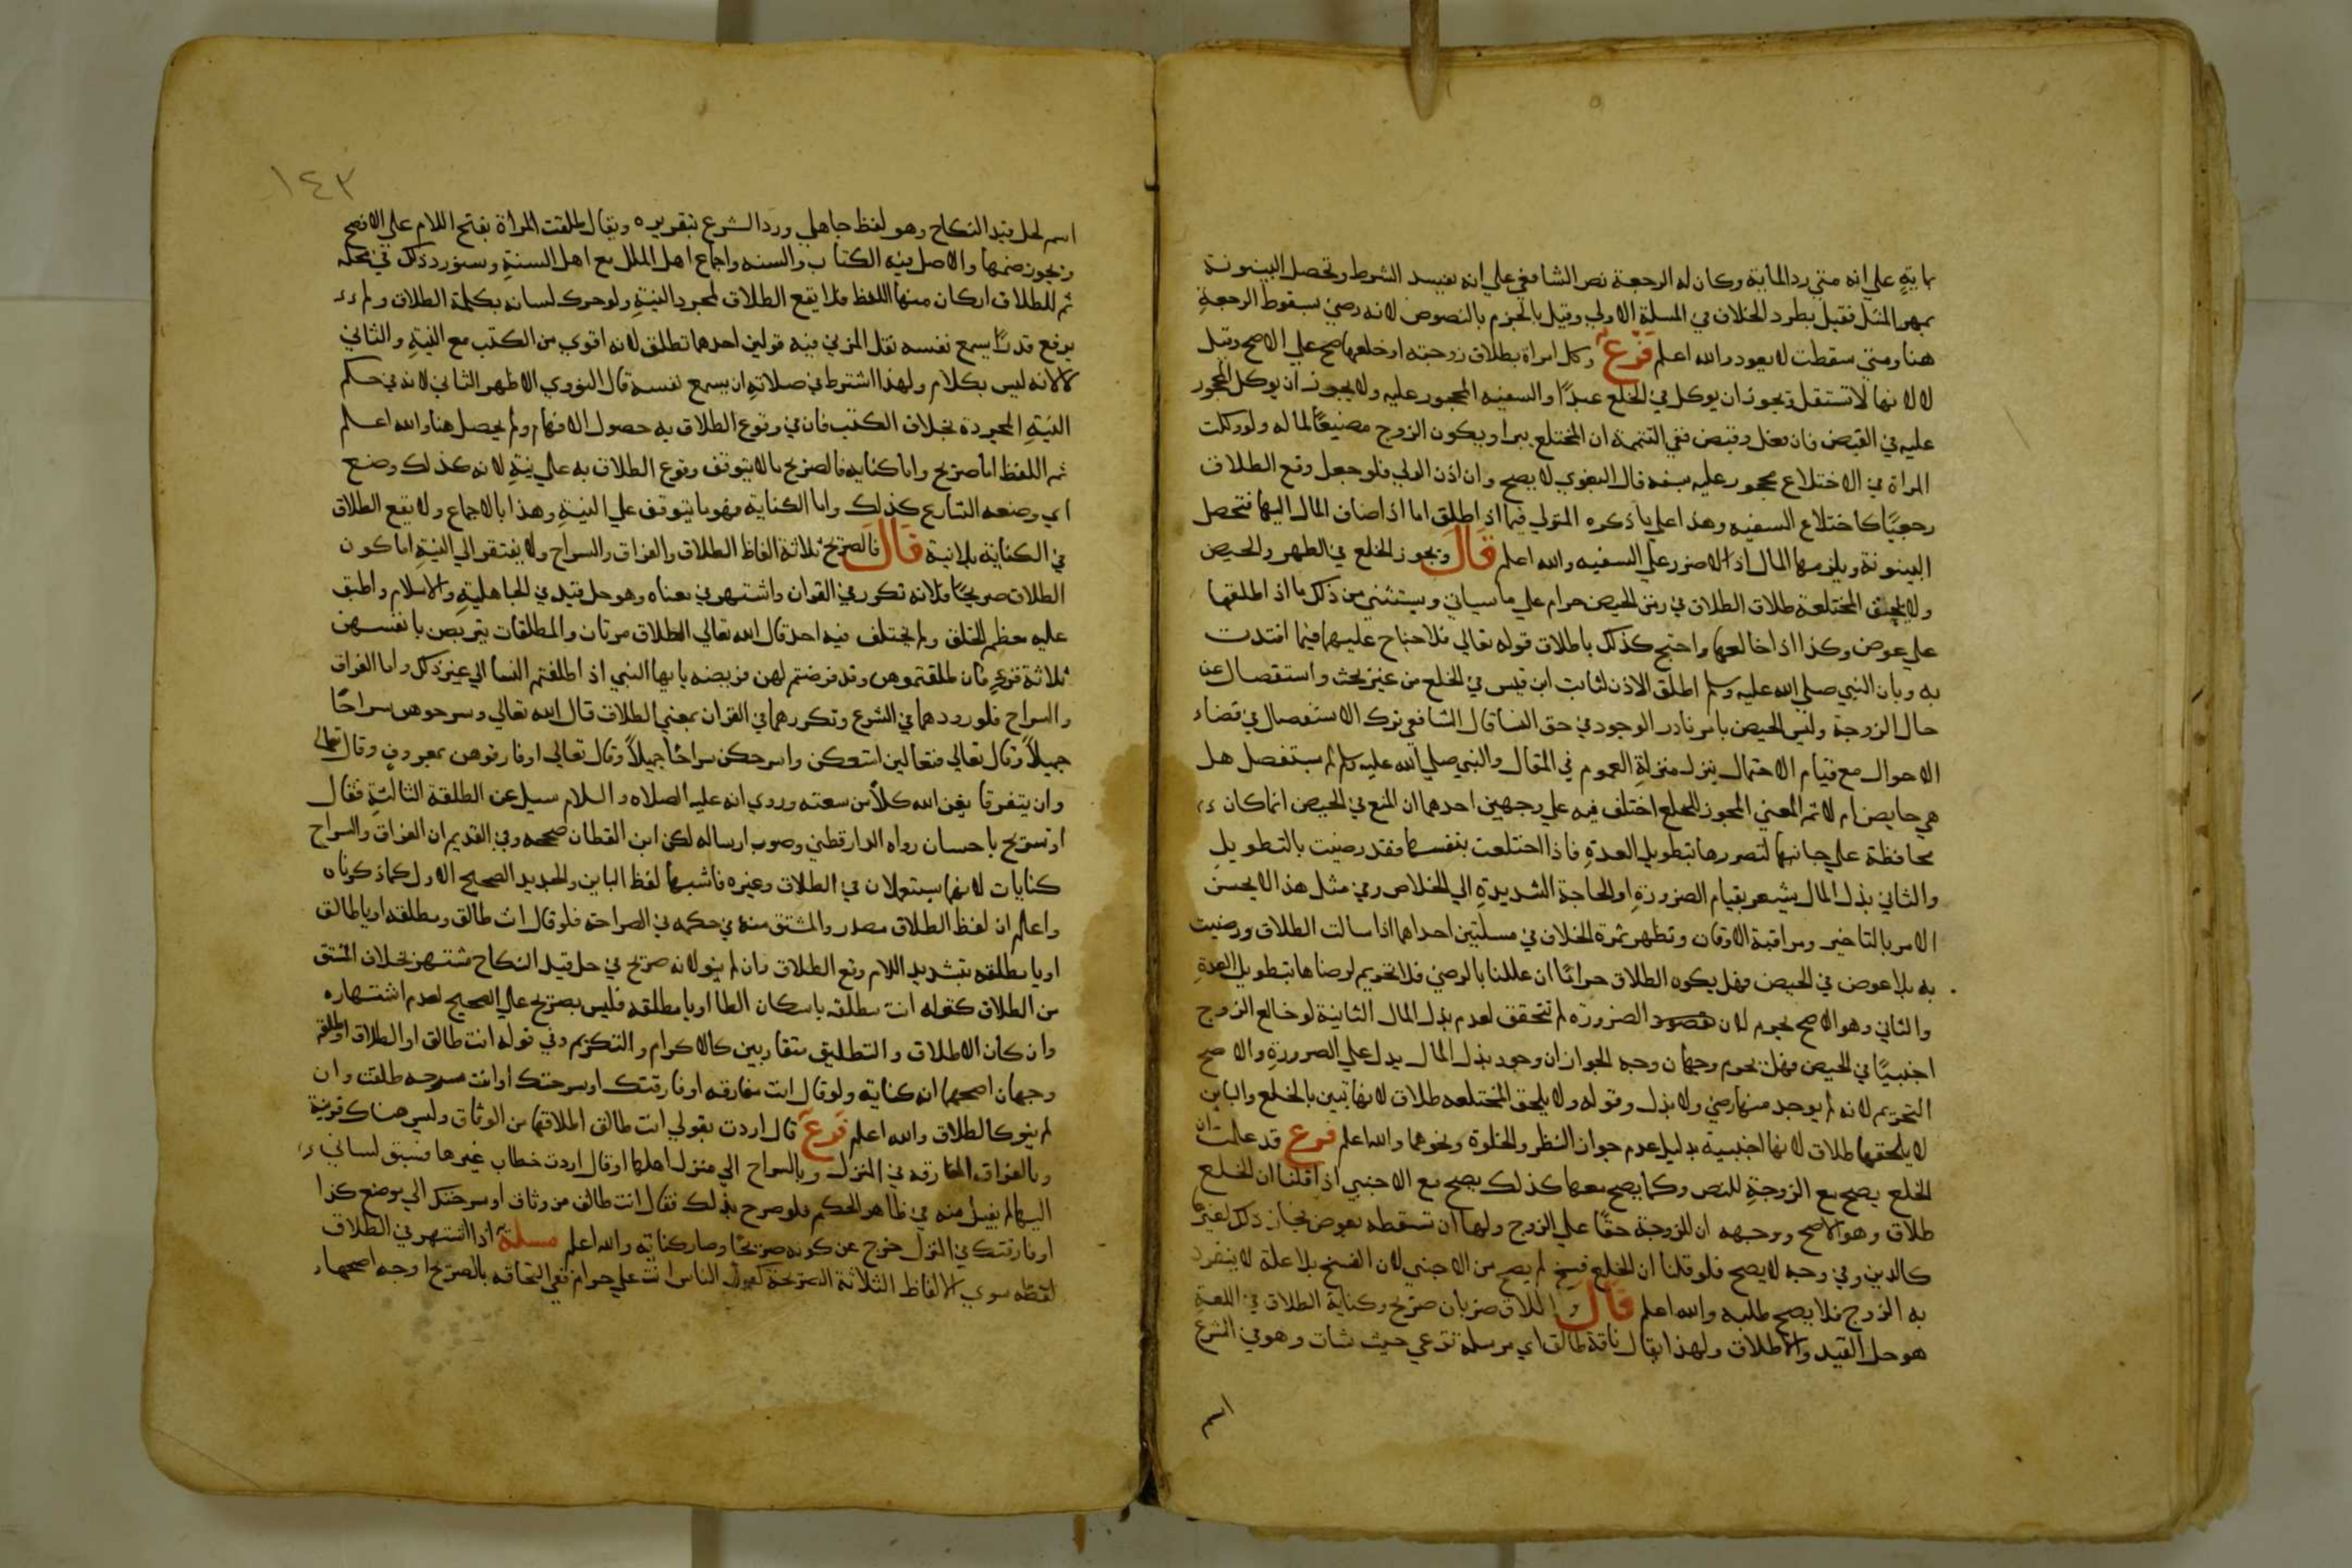 بماية علي انه متي رد الماية وكان له الرجعة نص الشافعي علي انه يفسد الشرط وتحصل البينونة
بمهر المثل فقيل بطرد الخلاف في المسلة الاولي وقيل بالجزم بالنصوص لانه رضي بسقوط الرجعة
هنا ومتي سقطت لا يعود والله اعلم فرع وكل امراة بطلاق زوجته او خلعها صح علي الاصح وقيل
لا لانها لا تستقل ويجوز ان يوكل في الخلع عبدا والسفيه المحجور عليه ولا يجوز ان يوكل المحجور
عليه في القبض فان فعل وقبض ففي التتمة ان المختلع يبرا ويكون الزوج مضيعا لماله ولو وكلت
المراة في الاختلاع محجور عليه بسفه قال البغوي لا يصح وان اذن الولي فلو جعل وقع الطلاق
رجعيا كاختلاع السفيه وهذا علي ما ذكره المتولي فيما اذا اطلق اما اذا اضاف المال اليها فتحصل
البينونة ويلزمها المال اذ لا ضرر علي السفيه والله اعلم قال ويجوز الخلع في الطهر والحيض
ولا يلحق المختلعة طلاق الطلاق في زمن الحيض حرام علي ما سياتي ويستثني من ذلك ما اذا طلقها
علي عوض وكذا اذا خالعها واحتج كذلك باطلاق قوله تعالي فلا جناح عليهما فيما افتدت
به وبان النبي صلي الله عليه وسلم اطلق الاذن لثابت ابن قيس في الخلع من غير بحث واستفصال عن
حال الزوجة وليس الحيض بامر نادر الوجود في حق النسا قال الشافعي ترك الاستفصال في قضاء
الاحوال مع قيام الاحتمال ينزل منزلة العموم في المقال والنبي صلي الله عليه وسلم لم يستفصل هل
هي حايض ام لا ثم المعني المجوز للخلع اختلف فيه علي وجهين احدهما ان المنع في الحيض انما كان
محافظة علي جانبها لتضررها بتطويل العدة فاذا اختلعت بنفسها فقد رضيت بالتطويل
والثاني بذل المال يشعر بقيام الضرورة او الحاجة الشديدة الي الخلاص وفي مثل هذا لا يحسن
الامر بالتاخير ومراقبة الاوقات وتظهر ثمرة الخلاف في مسلتين احداهما اذا سالت الطلاق ورضيت
به بلا عوض في الحيض فهل يكون الطلاق حراما ان عللنا بالرضي فلا تحريم لرضاها بتطويل العدة
والثاني وهو الاصح يحرم لان الضرورة لم تتحقق لعدم بذل المال الثانية لو خالع الزوج
اجنبيا في الحيض فهل يحرم وجهان وجه الجواز ان وجود بذل المال يدل علي الضرورة والاصح
التحريم لانه لم يوجد منها رضي ولا بذل وقوله ولا يلحق المختلعه طلاق لانها تبين بالخلع والباين
لا يلحقها طلاق لانها اجنبية بدليل عدم جواز النظر والخلوة ونحوهما والله اعلم فرع قد علمت ان
الخلع يصح مع الزوجة للنص وكما يصح معها كذلك يصح مع الاجنبي اذا قلنا ان الخلع
طلاق وهو الاصح ووجهه ان للزوجة حقا علي الزوج ولها ان تسقطه بعوض فجاز ذلك لغيرها
كالدين وفي وجه لا يصح فلو قلنا ان الخلع فسخ لم يصح من الاجنبي لان الفسخ بلا علة لا ينفرد
به الزوج فلا يصح طلبه والله اعلم قال والطلاق ضربان صريح وكناية الطلاق في اللغة
هو حل القيد والاطلاق ولهذا يقال ناقة طالق اي مرسلة ترعي حيث شات وهو في الشرع
١٤٣
اسم لحل قيد النكاح وهو لفظ جاهلي ورد الشرع بتقريره ويقال طلقت المراة بفتح اللام علي الافصح
ويجوز ضمها والاصل فيه الكتاب والسنه واجماع اهل الملل مع اهل السنة وسنورد ذلك في محله
ثم للطلاق اركان منها اللفظ فلا يقع الطلاق لمجرد النية ولو حرك لسانه بكلمة الطلاق ولم
يرفع قدرا يسمع نفسه نقل المزني فيه قولين احدهما تطلق لانه اقوي من الكتب مع النية والثاني
لا لانه ليس بكلام ولهذا اشترط في صلاته ان يسمع نفسه قال النووي الاظهر الثاني لانه في حكم
النية المجردة بخلاف الكتب فان في وقوع الطلاق به حصول الافهام ولم يحصل هنا والله اعلم
ثم اللفظ اما صريح واما كنايه فالصريح ما لا يتوقف وقوع الطلاق به علي نية لانه كذلك وضع
اي وضعه الشارع كذلك واما الكناية فهو ما يتوقف علي النية وهذا بالاجماع ولا يقع الطلاق
في الكناية بلا نية قال فالصريح ثلاثة الفاظ الطلاق والفراق والسراح ولا يفتقر الي النية اما كون
الطلاق صريحا فلانه تكرر في القران واشتهر في معناه وهو حل قيد في الجاهلية والاسلام واطبق
عليه معظم الخلق ولم يختلف فيه احد قال الله تعالي الطلاق مرتان والمطلقات يتربصن بانفسهن
ثلاثة قروء فان طلقتموهن وقد فرضتم لهن فريضه يا يها النبي اذا طلقتم النسا الي غير ذلك واما الفراق
والسراح فلورودهما في الشرع وتكررهما في القران بمعني الطلاق قال الله تعالي وسرحوهن سراحا
جميلا وقال تعالي فتعالين امتعكن واسرحكن سراحا جميلا وقال تعالي او فارقوهن بمعروف وقال تعالي
وان يتفرقا يغن الله كلا من سعته وروي انه عليه الصلاه والسلام سيل عن الطلقة الثالثة فقال
او تسريح باحسان رواه الدارقطني وصوب ارساله لكن ابن القطان صححه وفي القديم ان الفراق والسراح
كنايات لانهما يستعملان في الطلاق وغيره فاشبها لفظ الباين والجديد الصحيح الاول كما ذكرناه
واعلم ان لفظ الطلاق مصدر والمشتق منه في حكمه في الصراحة فلو قال انت طالق ومطلقه او يا طالق
او يا مطلقه بتشديد اللام وقع الطلاق وان لم ينو لانه صريح في حل قيد النكاح مشتهر بخلاف المشتق
من الطلاق كقوله انت مطلقه باسكان الطا او يا مطلقه فليس بصريح علي الصحيح لعدم اشتهاره
وان كان الاطلاق والتطليق متقاربين كالاكرام والتكريم وفي قوله انت طالق او الطلاق او طلقة
وجهان اصحهما انه كناية ولو قال انت مفارقه او فارقتك او سرحتك او انت مسرحه طلقت وان
لم ينو كالطلاق والله اعلم فرع قال اردت بقولي انت طالق اطلاقها من الوثاق وليس هناك قرينة
وبالفراق المفارقه في المنزل وبالسراح الي منزل اهلها او قال اردت خطاب غيرها فسبق لساني
اليها لم يقبل منه في ظاهر الحكم فلو صرح بذلك فقال انت طالق من وثاق او سرحتك الي موضع كذا
او فارقتك في المنزل خرج عن كونه صريحا وصار كناية والله اعلم مسلة اذا اشتهر في الطلاق
لفظه سوي الالفاظ الثلاثة الصريحة كقول الناس انت علي حرام ففي التحاقه بالصريح اوجه اصحها